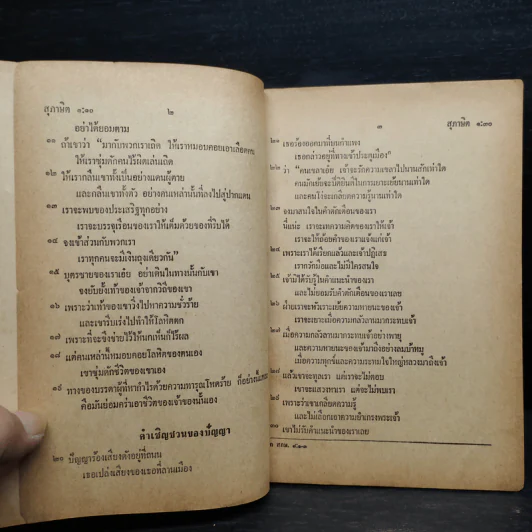 สุภาษิต ๑:๑๐ ๒
อย่าได้ยอมตาม
๑๑ ถ้าเขาว่า “มากับพวกเราเถิด ให้เราหมอบคอยเอาเลือดคน
ให้เราซุ่มดักคนไร้ผิดเล่นเถิด
๑๒ ให้เรากลืนเขาทั้งเป็นอย่างแดนผู้ตาย
และกลืนเขาทั้งตัว อย่างคนเหล่านั้นที่ลงไปสู่ปากแดน
๑๓ เราจะพบของประเสริฐทุกอย่าง
เราจะบรรจุเรือนของเราให้เต็มด้วยของที่ริบได้
๑๔ จงเข้าส่วนกับพวกเรา
เราทุกคนจะมีเงินถุงเดียวกัน”
๑๕ บุตรชายของเราเอ๋ย อย่าเดินในทางนั้นกับเขา
จงยับยั้งเท้าของเจ้าจากวิถีของเขา
๑๖ เพราะว่าเท้าของเขาวิ่งไปหาความชั่วร้าย
และเขารีบเร่งไปทำให้โลหิตตก
๑๗ เพราะที่จะขึงข่ายไว้ให้นกเห็นก็ไร้ผล
๑๘ แต่คนเหล่านี้หมอบคอยโลหิตของตนเอง
เขาซุ่มดักชีวิตของเขาเอง
๑๙ ทางของบรรดาผู้ที่หากำไรด้วยความทารุณโหดร้าย ก็อย่างนี้แหละ
คือมันย่อมคร่าเอาชีวิตของเจ้าของนั้นเอง
คำเชิญชวนของปัญญา
๒๐ ปัญญาร้องเสียงดังอยู่ที่ถนน
เธอเปล่งเสียงของเธอที่ลานเมือง
๓ สุภาษิต ๑:๓๐
๒๑ เธอร้องออกมาที่บนกำแพง
เธอกล่าวอยู่ที่ทางเข้าประตูเมือง
๒๒ ว่า “คนเขลาเอ๋ย เจ้าจะรักความเขลาไปนานสักเท่าใด
คนมักเย้ยจะปีติยินดีในการเยาะเย้ยนานเท่าใด
และคนโง่จะเกลียดความรู้นานเท่าใด
๒๓ จงมาสนใจในคำตักเตือนของเรา
นี่แน่ะ เราจะเทความคิดของเราให้เจ้า
เราจะให้ถ้อยคำของเราแจ้งแก่เจ้า
๒๔ เพราะเราได้เรียกแล้วและเจ้าปฏิเสธ
เรากวักมือและไม่มีใครสนใจ
๒๕ เจ้ามิได้รับรู้ในคำแนะนำของเรา
และไม่ยอมรับคำตักเตือนของเราเลย
๒๖ ฝ่ายเราจะหัวเราะเย้ยความหายนะของเจ้า
เราจะเยาะเมื่อความกลัวลานมากระทบเจ้า
๒๗ เมื่อความกลัวลานมากระทบเจ้าอย่างพายุ
และความหายนะของเจ้ามาถึงอย่างลมบ้าหมู
เมื่อความทุกข์และความระทมใจใหญ่หลวงมาถึงเจ้า
๒๘ แล้วเขาจะทูลเรา แต่เราจะไม่ตอบ
เขาจะแสวงหาเรา แต่จะไม่พบเรา
๒๙ เพราะว่าเขาเกลียดความรู้
และไม่เลือกเอาความยำเกรงพระเจ้า
๓๐ เขาไม่รับคำแนะนำของเราเลย